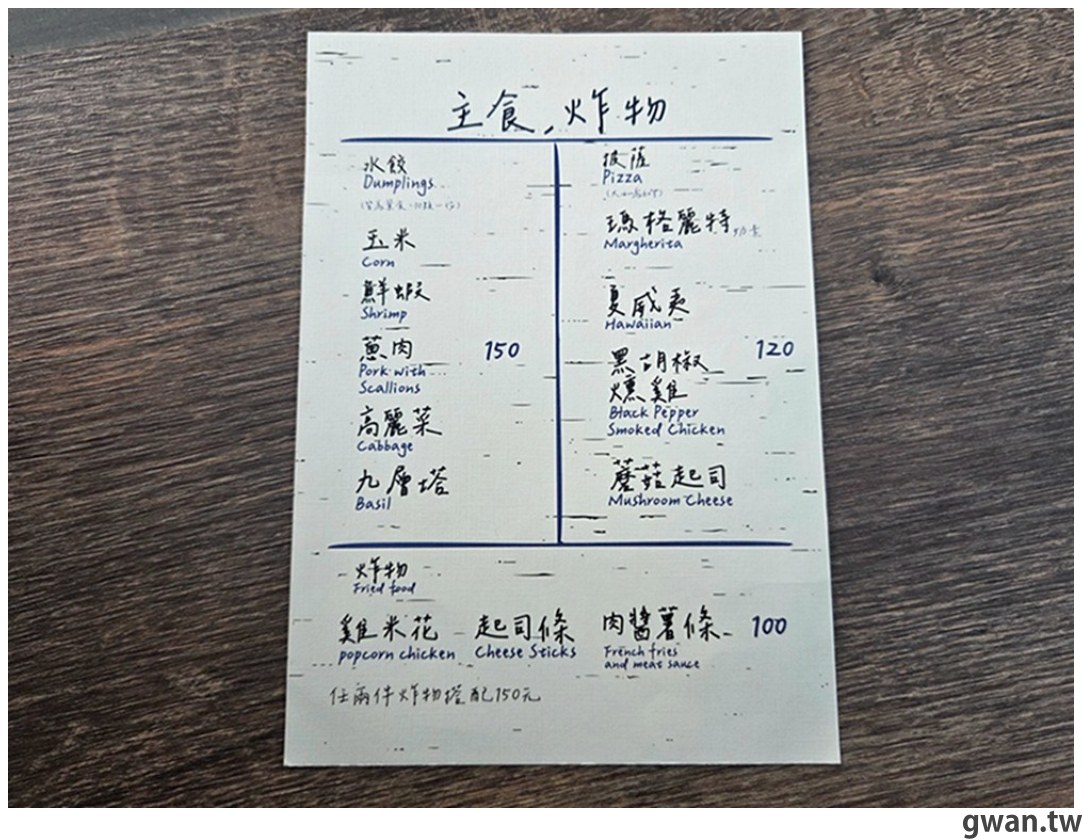 主食、炸物
水餃
Dumplings
玉米
Corn
鮮蝦
Shrimp
蔥肉
150
Pork with
Scallions
高麗菜
Cabbage
九層塔
Basil
披薩
Pizza
瑪格麗特
Margherita
夏威夷
Hawaiian
120
黑胡椒
燻雞
Black Pepper
Smoked Chicken
蘑菇起司
Mushroom Cheese
炸物
Fried food
雞米花 起司條 肉醬薯條 100
popcorn chicken Cheese Sticks French fries
and meat sauce
任兩件炸物搭配150元
gwan.tw